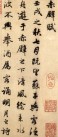 赤壁賦
壬戌之秋七月既望蘇子與客泛
舟遊于赤壁之下清風徐來水
波不興舉酒屬客誦明月之詩